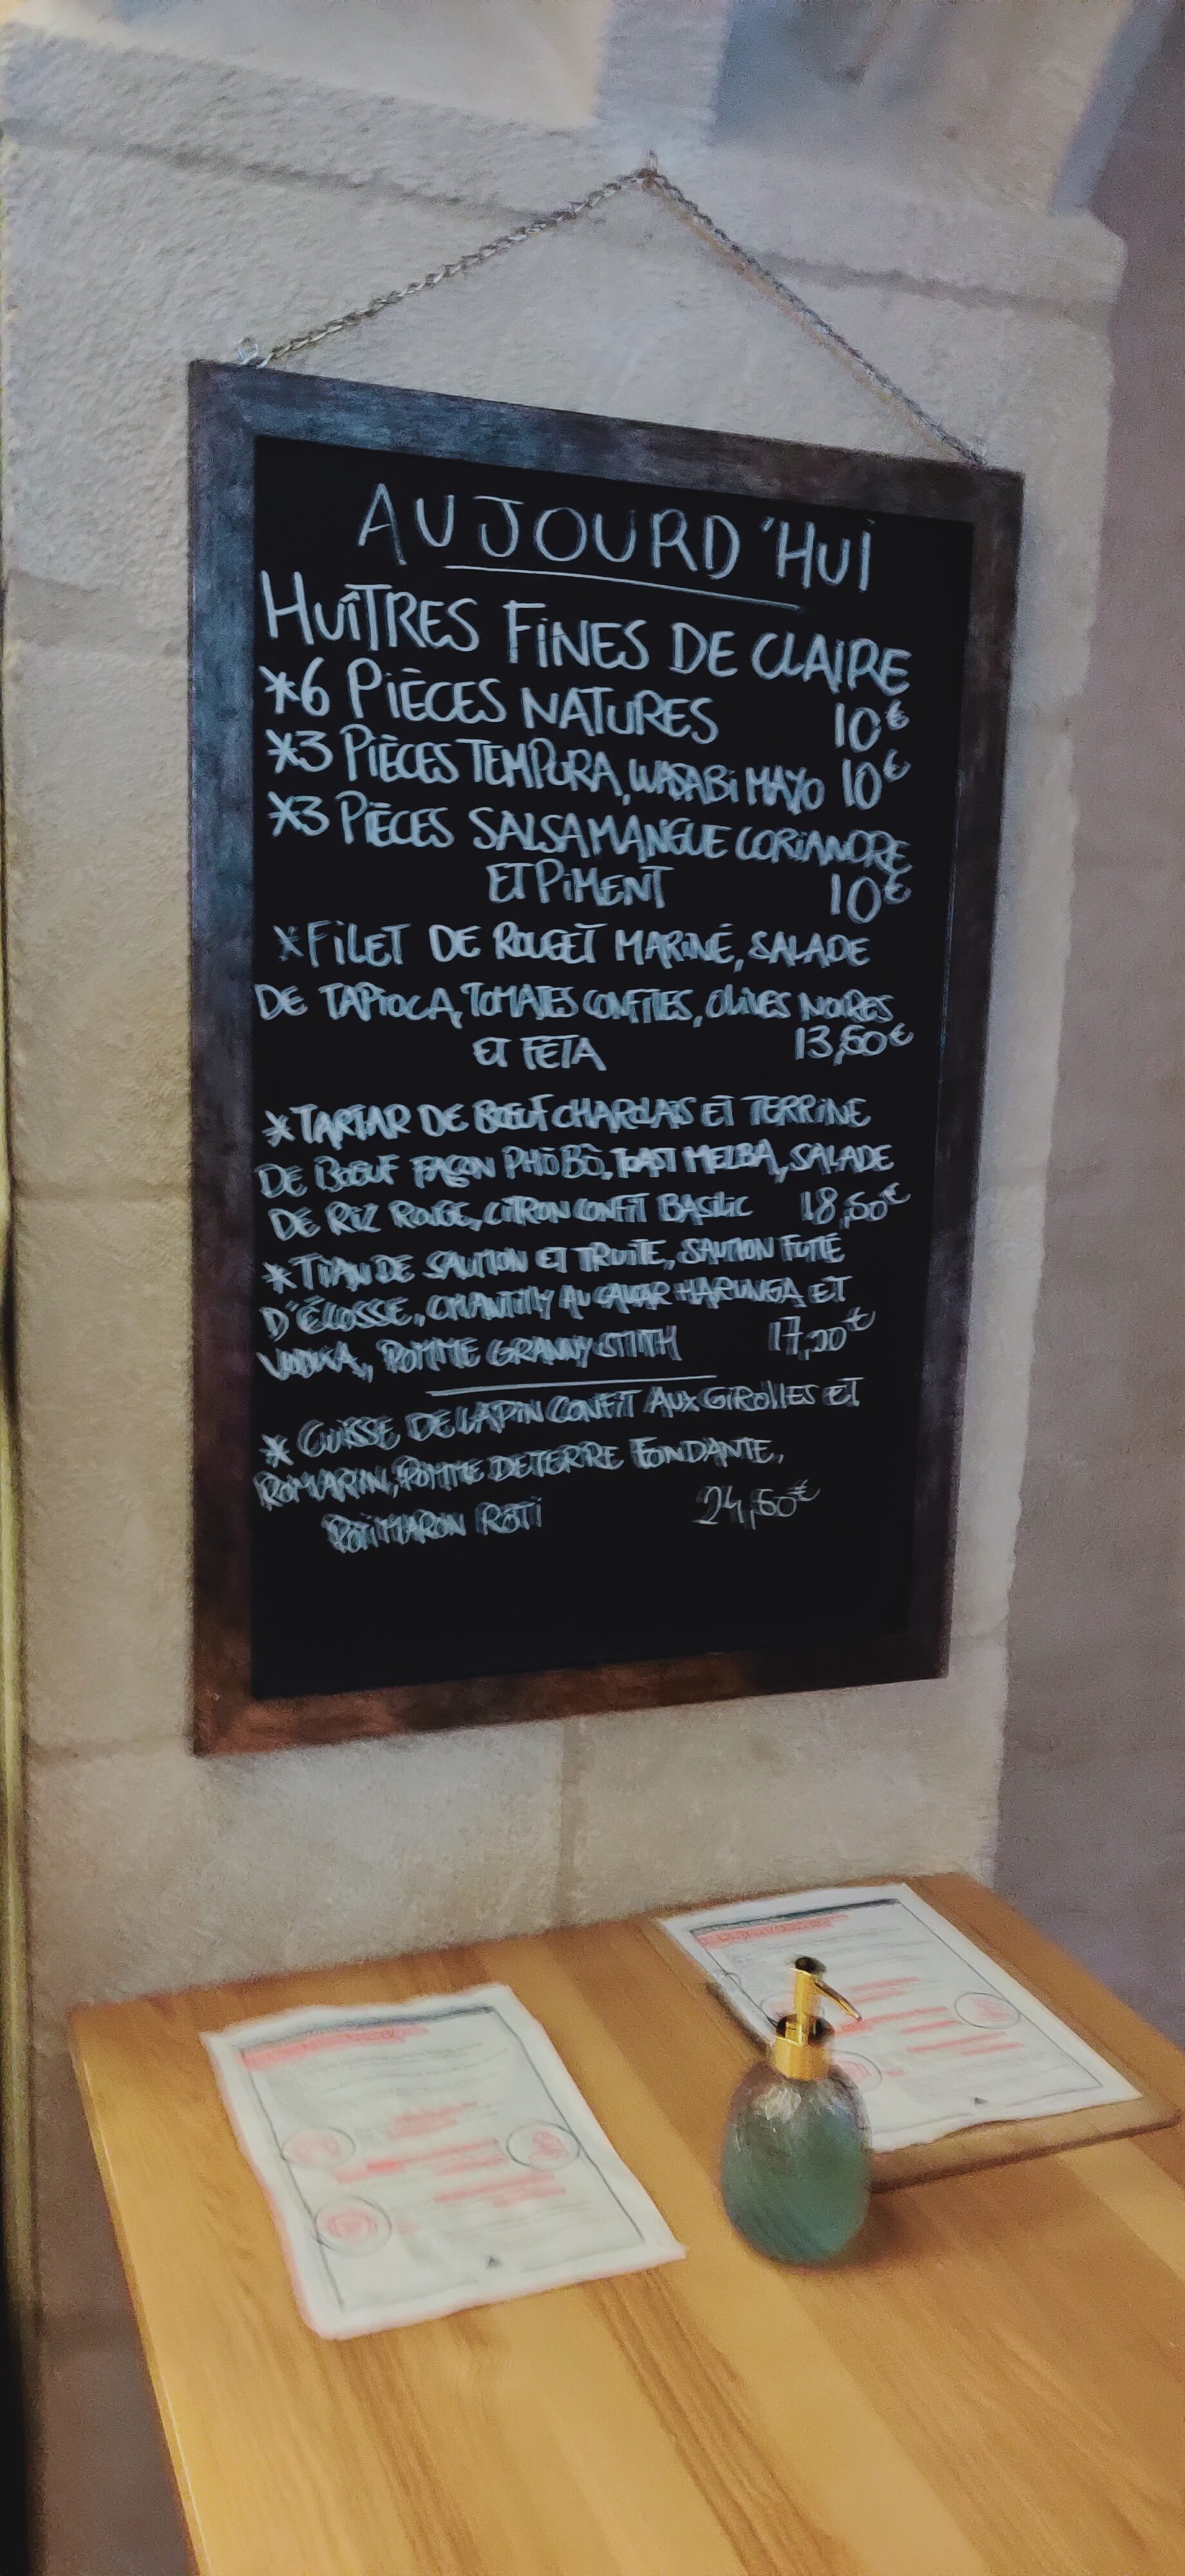 AUJOURD'HUI
HUÎTRES FINES DE CLAIRE
*6 PIÈCES NATURES 10€
*3 PIÈCES TEMPURA, WASABI MAYO 10€
*3 PIÈCES SALSA MANGUE CORIANDRE
ET PIMENT 10€
*FILET DE ROUGET MARINÉ, SALADE
DE TAPIOCA, TOMATES CONFITES, OLIVES NOIRES
ET FETA 13,60€
*TARTAR DE BOEUF CHAROLAIS ET TERRINE
DE BOEUF FAÇON PHÔ BÒ, TOAST MELBA, SALADE
DE RIZ ROUGE, CITRON CONFIT BASILIC 18,60€
*TIAN DE SAUMON ET TRUITE, SAUMON FUMÉ
D'ÉCOSSE, CHANTILLY AU CAVIAR HARUNGA ET
VODKA, POMME GRANNY SMITH 17,20€
* CUISSE DE LAPIN CONFIT AUX GIROLLES ET
ROMARIN, POMME DE TERRE FONDANTE,
POTIMARON RÔTI 24,60€